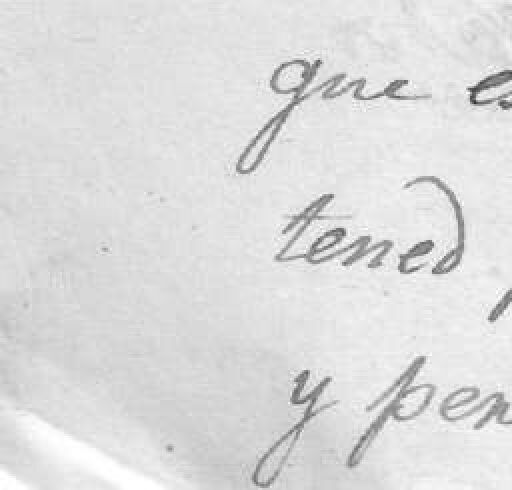 que es
tened
y pen